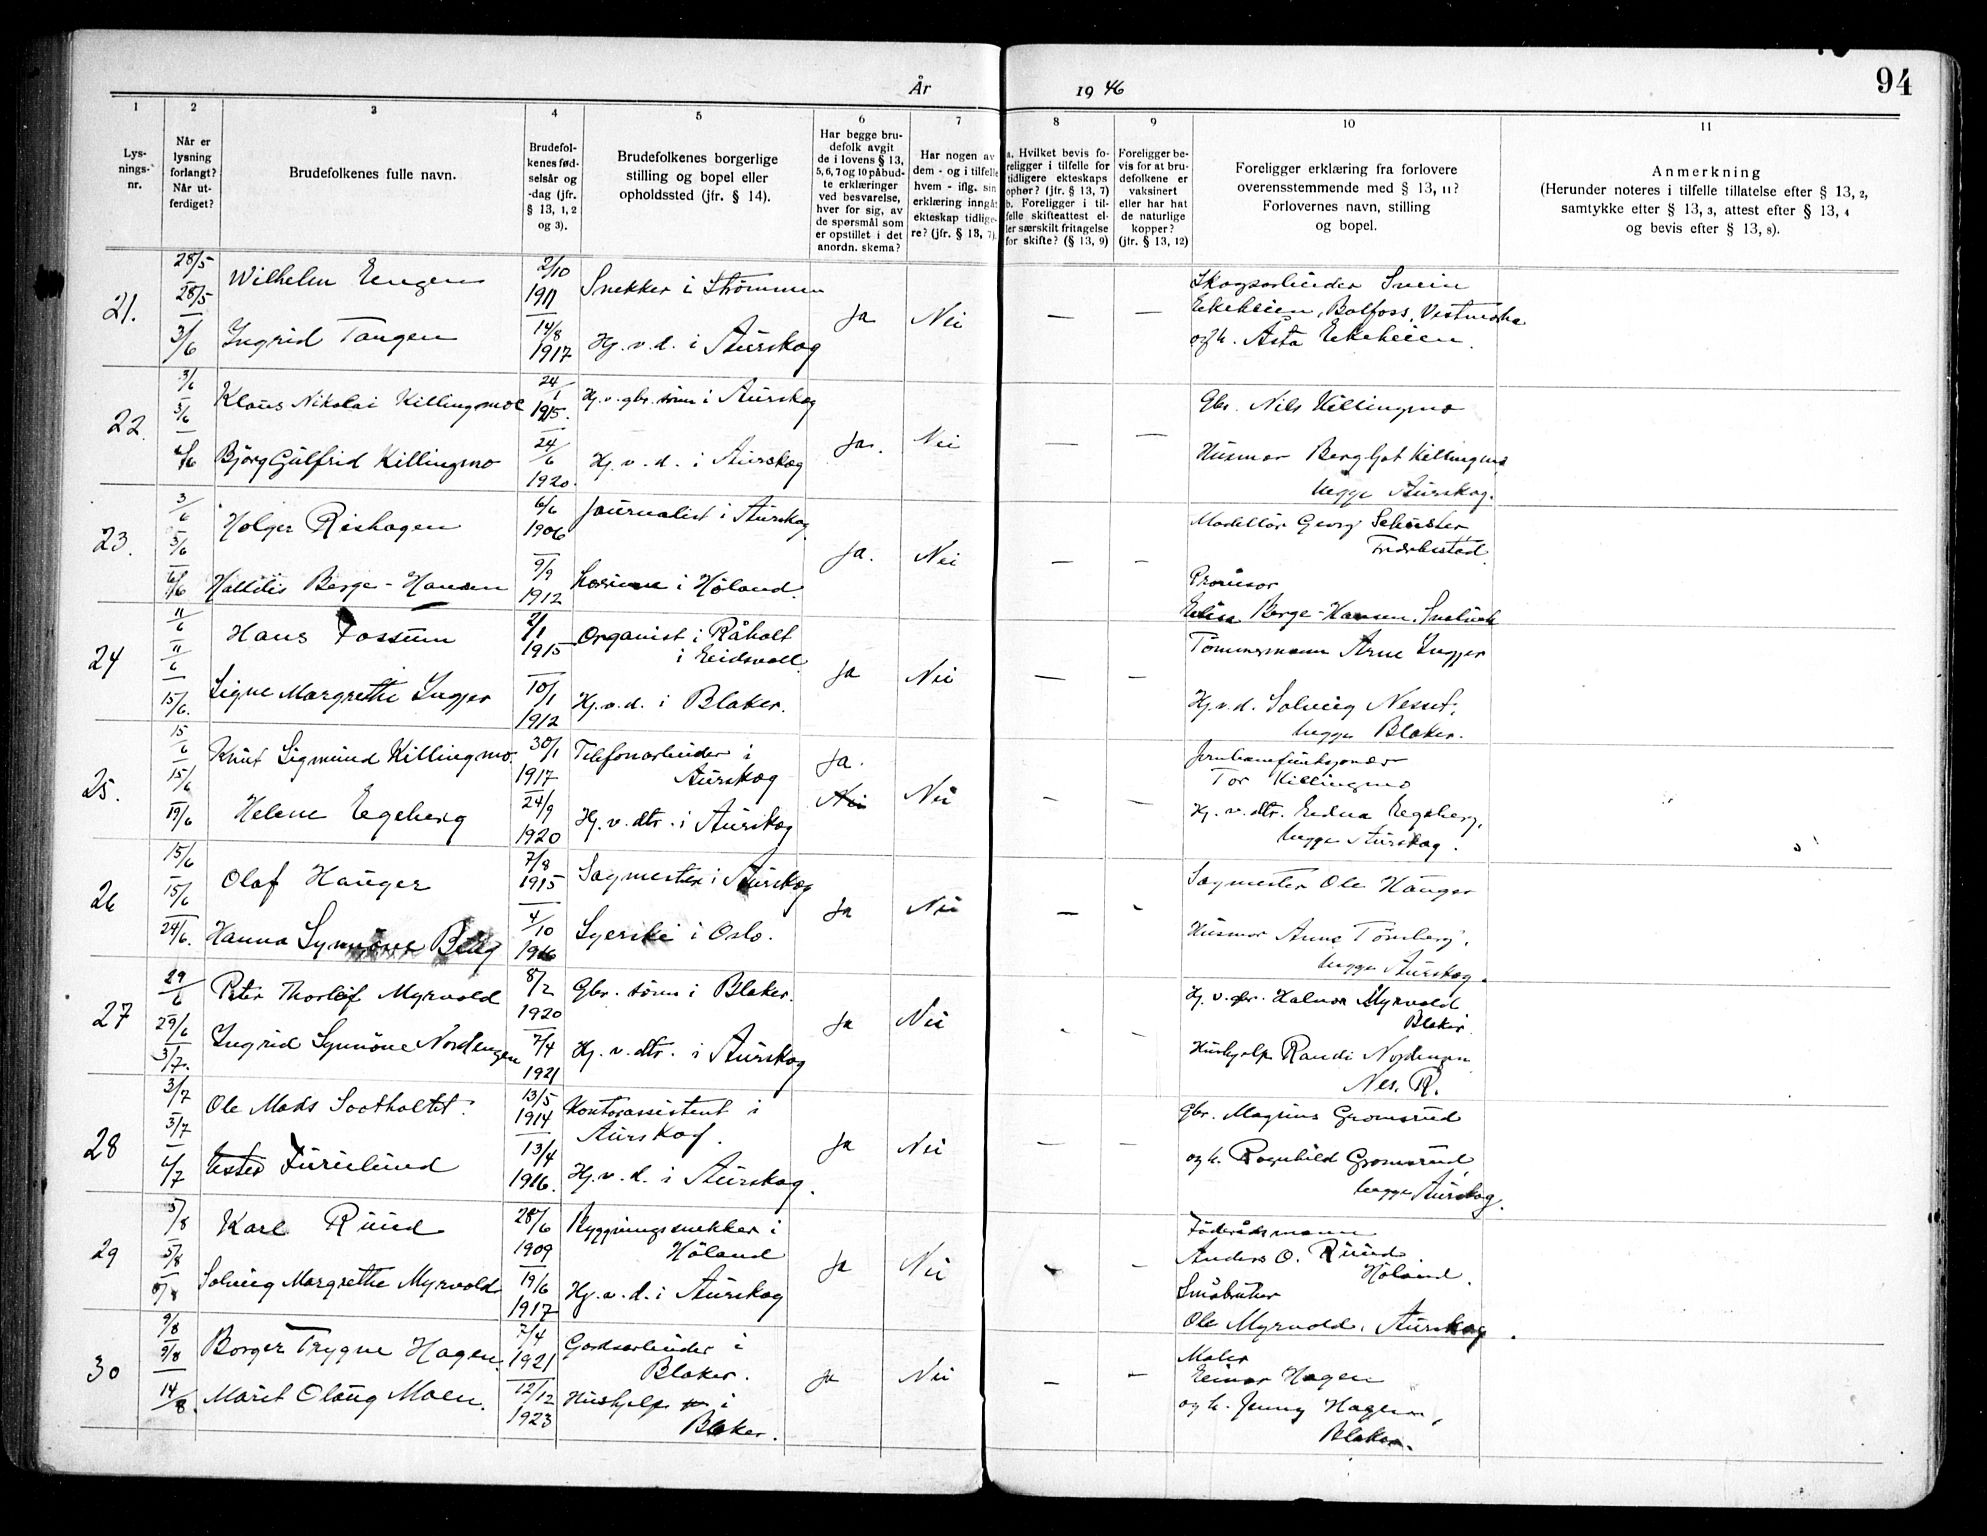 94
År 1946
1 2 3 4 5 6 7 8 9 10 11
Lys-
nings-
nr.
Når er
lysning
forlangt?
Når ut-
ferdiget?
Brudefolkenes fulle navn.
Brudefol-
kenes fød-
selsår og
-dag (jfr.
§ 13, 1, 2
og 3).
Brudefolkenes borgerlige
stilling og bopel eller
opholdssted (jfr. § 14).
Har begge bru-
defolk avgit
de i lovens § 13,
5, 6, 7 og 10 påbud-
te erklæringer
ved besvarelse,
hver for sig, av
de spørsmål som
er opstillet i det
anordn. skema?
Har nogen av
dem - og i tilfelle
hvem - iflg. sin
erklæring inngåt
ekteskap tidlige-
re? (jfr. § 13, 7)
a. Hvilket bevis fo-
religger i tilfelle for
tidligere ekteskaps
ophør? (jfr. § 13, 7)
b. Foreligger i til-
felle skifteattest el-
ler særskilt fritagelse
for skifte? (§ 13, 9)
Foreligger be-
vis for at bru-
defolkene er
vaksinert
eller har hat
de naturlige
kopper?
(jfr. § 13, 12)
Foreligger erklæring fra forlovere
overensstemmende med § 13, 11?
Forlovernes navn, stilling
og bopel.
Anmerkning
(Herunder noteres i tilfelle tillatelse efter § 13, 2,
samtykke efter § 13, 3, attest efter § 13, 4
og bevis efter § 13, 8).
21. 28/5 28/5 3/6
Wilhelm Engen 2/10 1911 Snekker i Strømmen
Ingrid Tangen 14/8 1917 Hj.v.d. i Aurskog
Ja Nei — —
Skogsarbeider Svein
Ekeheien, Bolfoss,
og h. Asta Ekeheien.
22. 3/6 3/6 6/6
Klaus Nikolai Killingmoe 24/1 1915. Hj.v.gbr. sønn i Aurskog
Bjørg Gulfrid Killingmo 24/6 1920. Hj.v.d. i Aurskog
Ja. Nei — —
Gbr. Nils Killingmo
Husmor Bergljot Killingmo
begge Aurskog.
23. 3/6 3/6 6/6
Holger Rishagen 6/6 1906 Journalist i Aurskog
Halldis Berge-Hansen 9/9 1912 i Høland.
Ja. Nei — —
Modellør Georg Schuster
Fredrikstad
Provisor
Berge-Hansen,
24 11/6 11/6 15/6.
Hans Fossum 2/1 1915 Organist i Råholt
i Eidsvoll.
Signe Margrethe Ingjer 10/1 1912 Hj.v.d. i Blaker.
Ja Nei — —
Tømmermann Arne Ingjer
Hj.v.d. Solveig Nesset,
begge Blaker.
25. 15/6 15/6 19/6
Knut Sigmund Killingmo. 30/1 1917 Telefonarbeider i
Aurskog
Helene Egeberg 24/9 1920 Hj.v.dtr. i Aurskog
Ja. Nei Nei — —
Jernbanefunksjonær
Tor Killingmo
Hj.v.dtr. Edna Egeberg,
begge Aurskog.
26 15/6 15/6 24/6.
Olaf Hauger 7/8 1915 Sagmester i Aurskog
Hanna Synnøve Berg 4/10 1916 Syerske i Oslo.
Ja Nei — -
Sagmester Ole Hauger
Husmor Anne Tønsberg,
begge Aurskog.
27 29/6 29/6 3/7.
Peter Thorleif Myrvold 8/2 1920 Gbr. sønn i Blaker.
Ingrid Synnøve Nordengen 7/4 1921 Hj.v.dtr. i Aurskog
Ja Nei - -
Hj.v.gbr. Halvor Myrvold
Blaker.
Hushjelp Randi
Nes. R.
28 3/7 3/7 6/7
Ole Mads Sootholtet. 13/5 1914 Kontorassistent i
Aurskog.
Ester Furulund 13/4 1916. Hj.v.d. i Aurskog.
Ja Nei — —
Gbr. Magnus Gromsrud
og h. Ragnhild Gromsrud,
begge Aurskog.
29 5/8 5/8 8/8
Karl Ruud 28/6 1909 Byggningssnekker i
Höland
Solveig Margrethe Myrvold 19/6 1917 Hj.v.d. i Aurskog
Ja Nei - -
Föderådsmann
Anders O. Ruud
Höland.
Småbruker
Ole Myrvold, Aurskog.
30 9/8 9/8 14/8.
Borger Trygve Hagen. 7/4 1921 Gardsarbeider i
Blaker.
Marit Olaug Moen. 12/12 1923 Hushjelp i
Blaker.
Ja Nei — -
Maler
Einar Hagen
og h. Jenny Hagen,
Blaker.